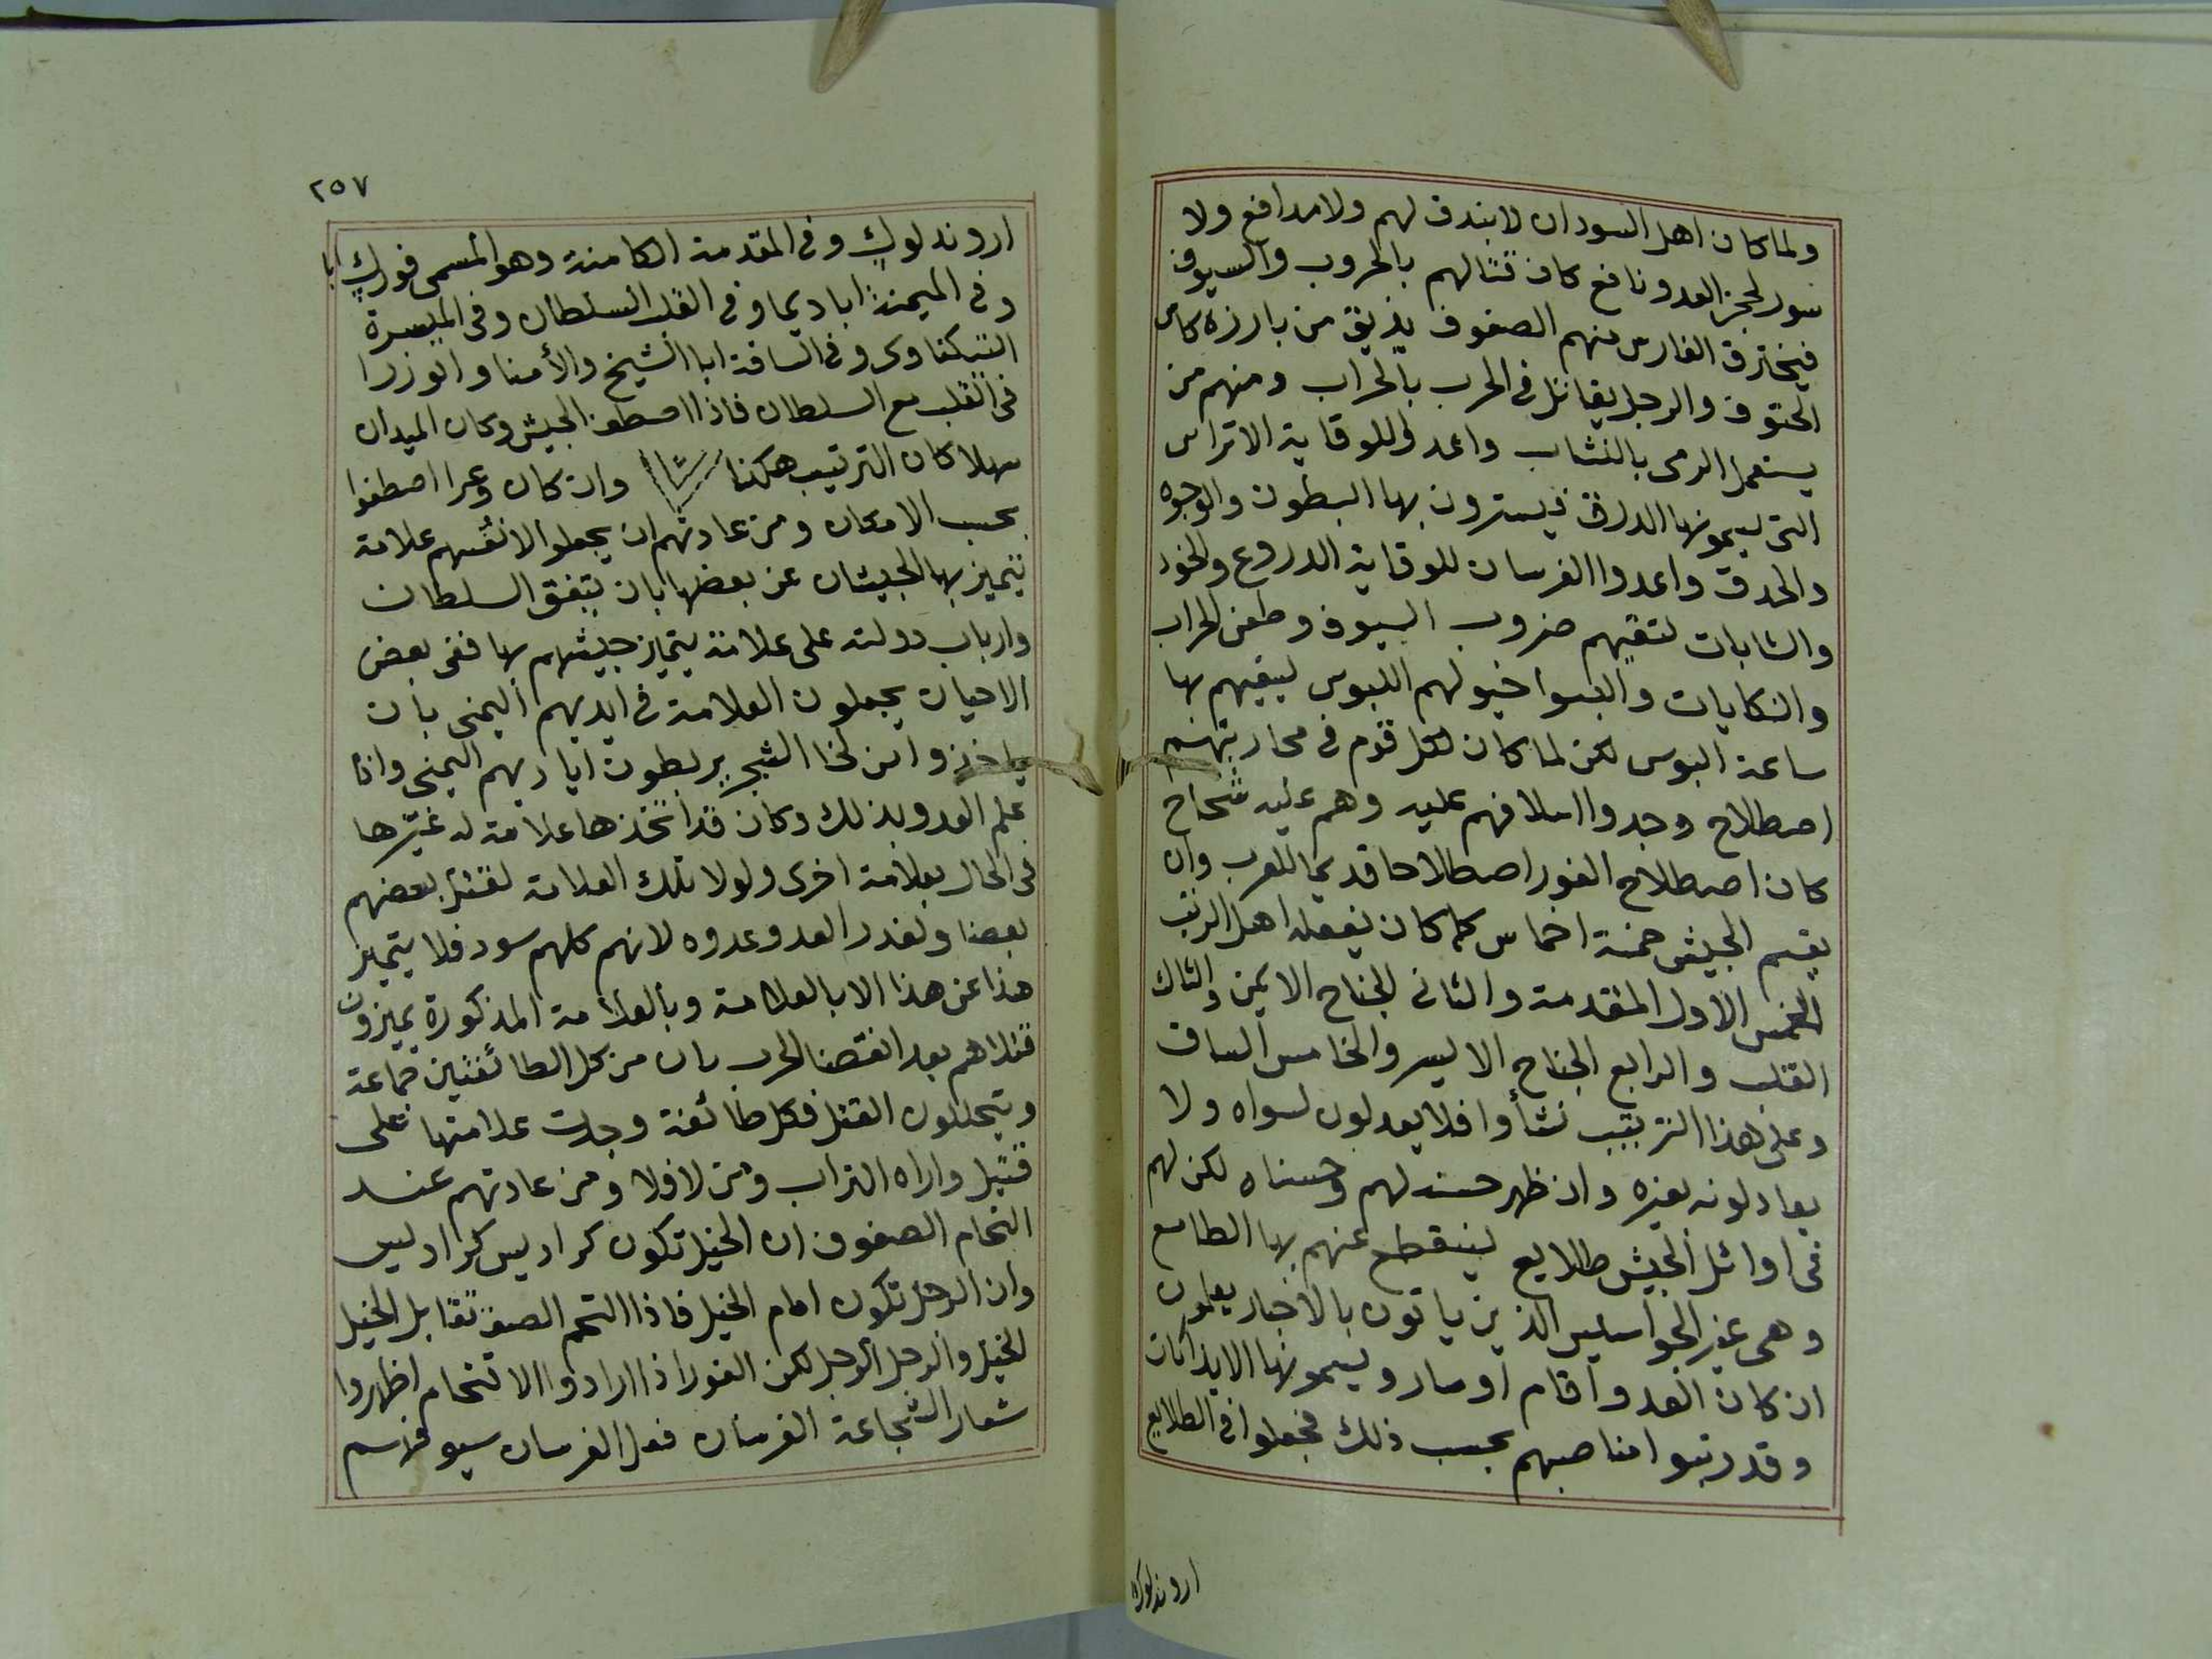 ولما كان اهل السودان لا بندق لهم ولا مدافع ولا
سور لحجز العدو نافع كان قتالهم بالحروب والسيوف
فيخترق الفارس منهم الصفوف يذيق من بارزه كاس
الحتوف والرجل يقاتل في الحرب بالحراب ومنهم من
يستعمل الرمي بالنشاب واعدوا للوقاية الاتراس
التي يسمونها الدرق فيسترون بها البطون والوجوه
والحدق واعدوا الفرسان للوقاية الدروع والخود
والشابات لتقيهم ضروب السيوف وطعن الحراب
والنكايات والبسوا خيولهم اللبوس ليقيهم بها
ساعة البوس لكن لما كان لكل قوم في محاربتهم
اصطلاح وجدوا اسلافهم عليه وهم عليه شحاح
كان اصطلاح الفور اصطلاحا قديما للعرب وان
يقسم الجيش خمسة اخماس كما كان يفعله اهل الرتب
الخمس الاول المقدمة والثاني الجناح الايمن والثالث
القلب والرابع الجناح الايسر والخامس الساق
وعلى هذا الترتيب نشأوا فلا يعدلون لسواه ولا
يعادلونه بغيره وان ظهر حسنه لهم وحسناه لكن لهم
في اوائل الجيش طلايع لينقطع عنهم بها الطامع
وهي غير الجواسيس الذين ياتون بالاخبار يعلمون
ان كان العدو اقام او سار ويسمونها الايذانات
وقد رتبوا مناصبهم بحسب ذلك فجعلوا في الطلايع
اروندلوك
٢٥٧
اروندلوك وفي المقدمة الكامنة وهو المسمى فورك ابا
وفي الميمنة ابا ديما وفي القلب السلطان وفي الميسرة
التيكناوى وفي الساقة ابا الشيخ والأمنا والوزرا
في القلب مع السلطان فاذا اصطف الجيش وكان الميدان
سهلا كان الترتيب هكذا وان كان وعرا اصطفوا
بحسب الامكان ومن عادتهم ان يجعلوا لانفسهم علامة
تتميز بها الجيشان عن بعضها بان يتفق السلطان
وارباب دولته على علامة يتميز جيشهم بها ففي بعض
الاحيان يجعلون العلامة في ايديهم اليمنى بان
ياخذوا من لحا الشجر يربطون اياديهم اليمنى واذا
علم العدو بذلك وكان قد اتخذها علامة له غيرها
في الحال بعلامة اخرى ولولا تلك العلامة لقتل بعضهم
بعضا ولغدر العدو عدوه لانهم كلهم سود فلا يتميز
هذا عن هذا الا بالعلامة وبالعلامة المذكورة يميزون
قتلاهم بعد انقضا الحرب بان من كل الطائفتين جماعة
ويتخللون القتل فكل طائفة وجدت علامتها على
قتيل واراه التراب ومن لا فلا ومن عادتهم عند
التحام الصفوف ان الخيل تكون كراديس كراديس
وان الرجل تكون امام الخيل فاذا التحم الصف تقابل الخيل
الخيل والرجل الرجل لكن الفور اذا ارادوا الاقتحام اظهروا
شعار الشجاعة الفرسان فعل الفرسان سيوفهم